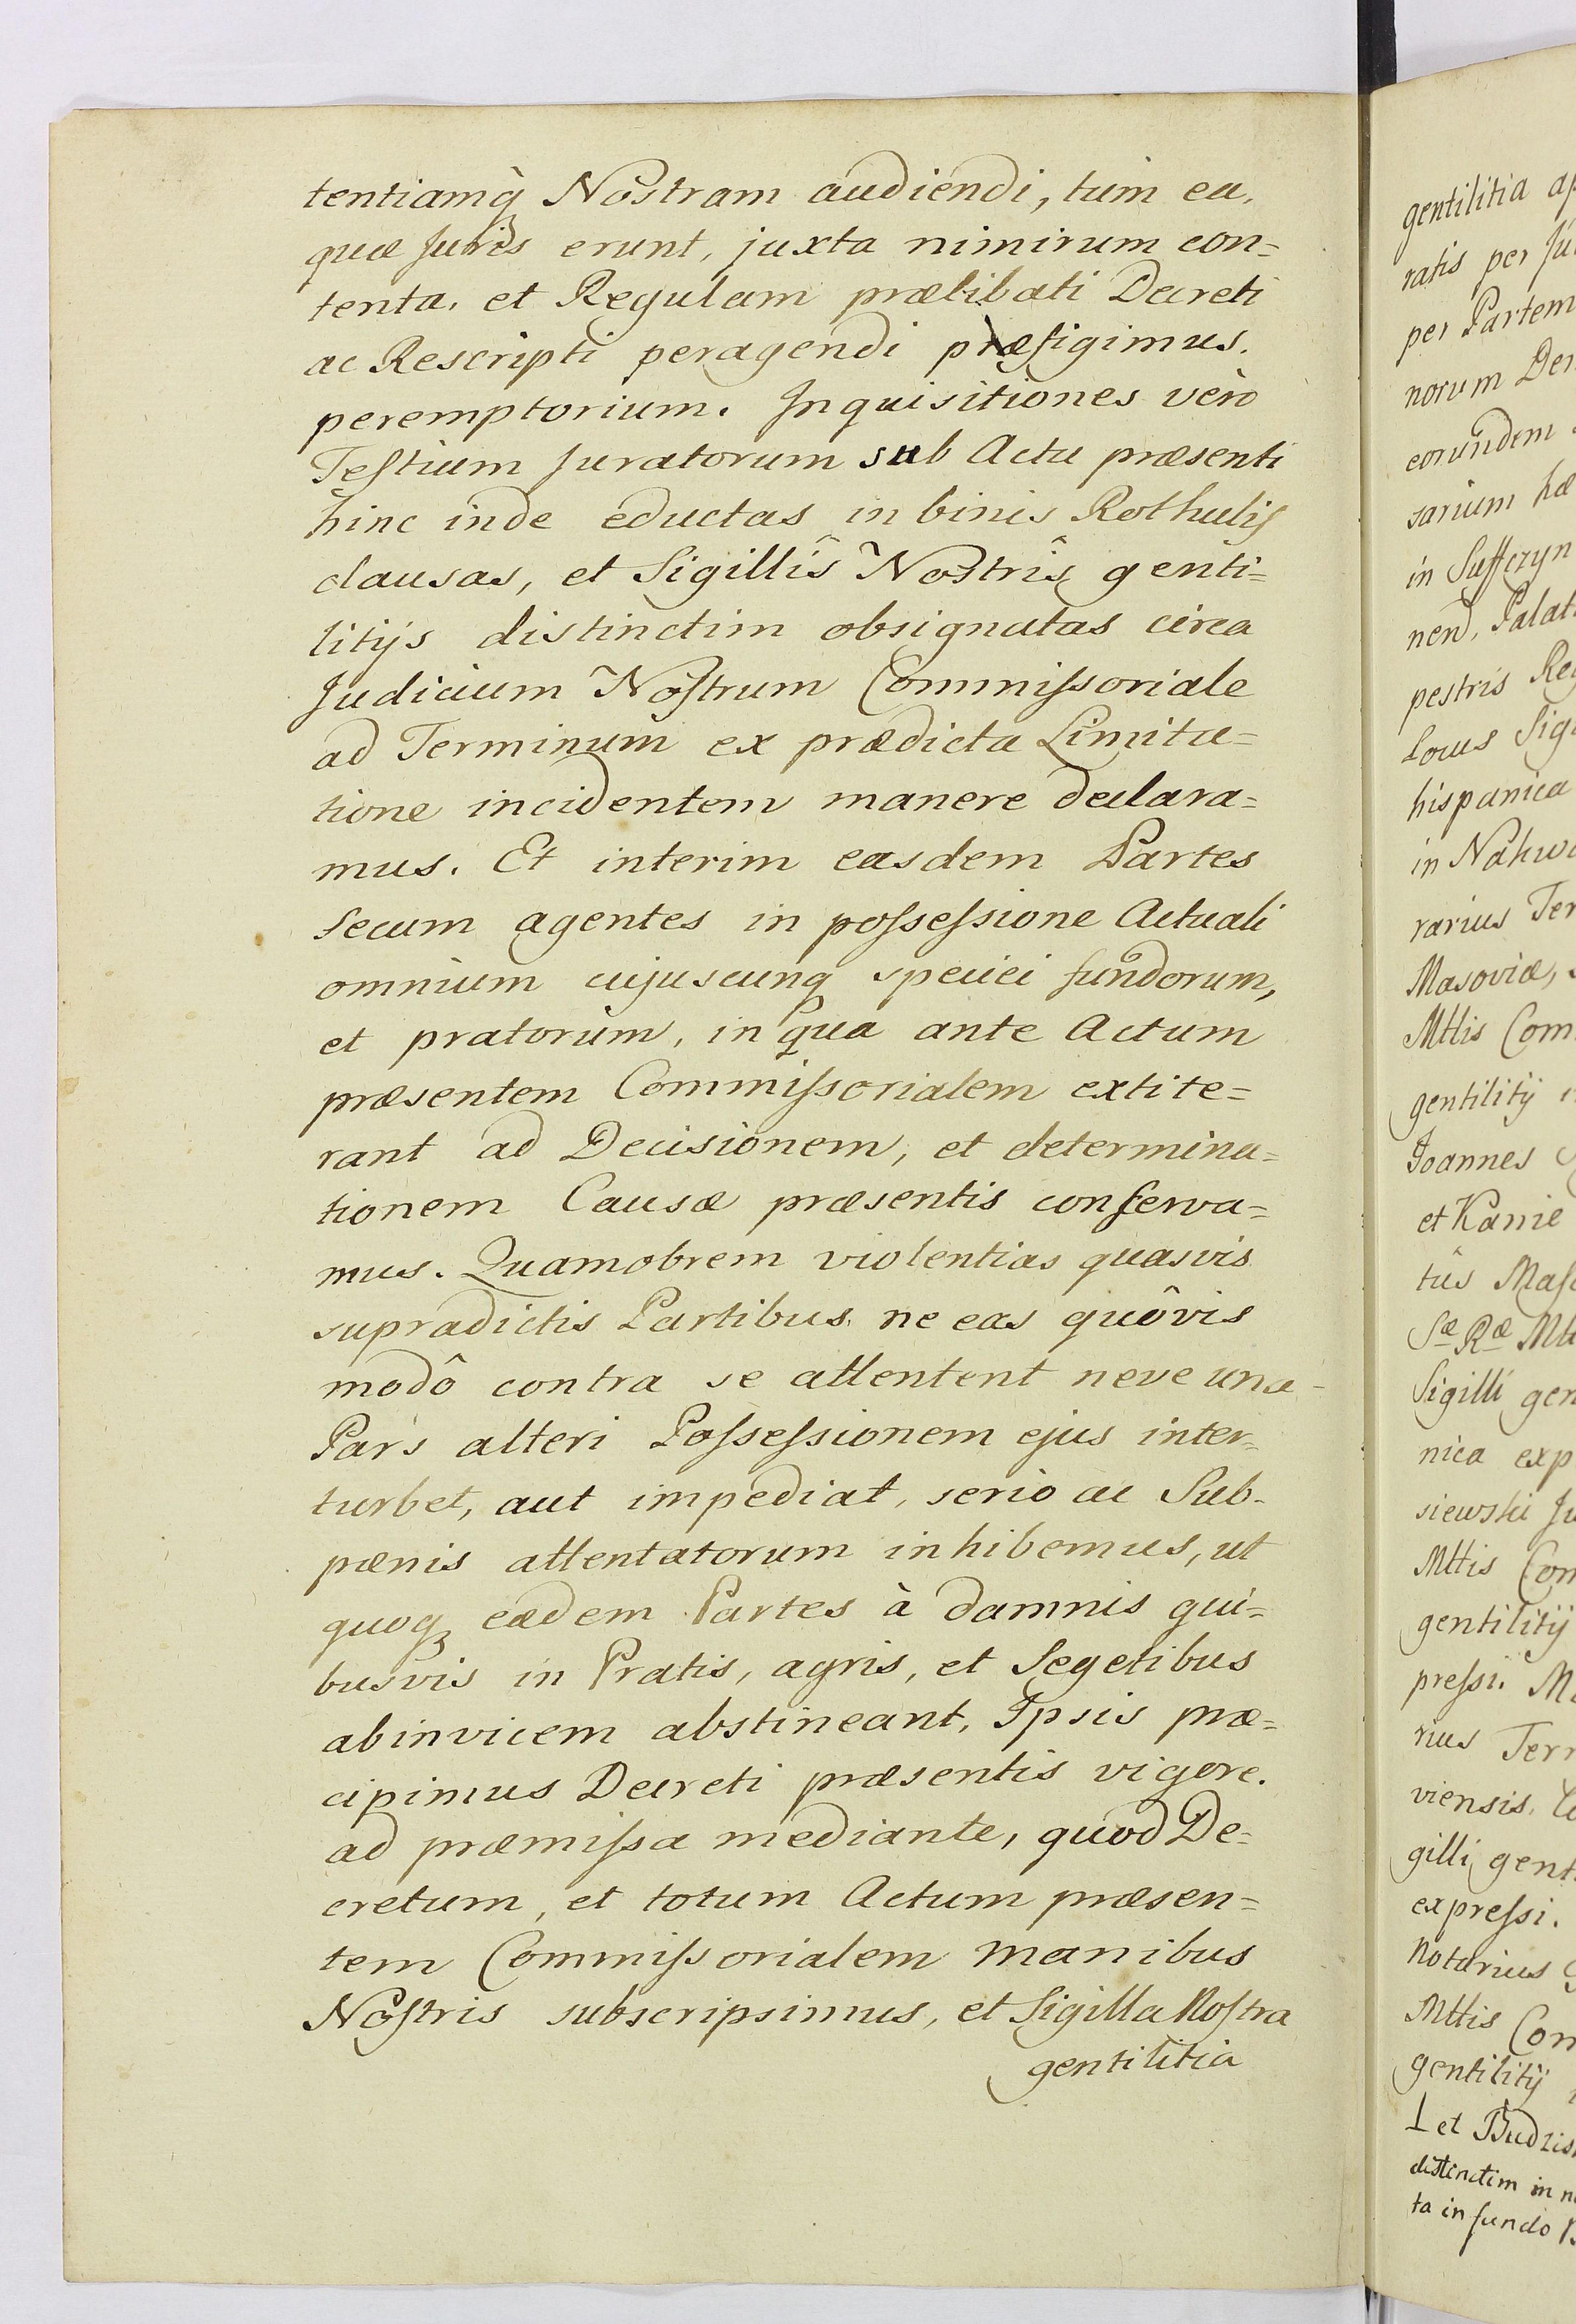 tentiamq̀ Nostram audiendi, tùm ea,
quæ Juris erunt, juxta nimirum con=
tenta, et Regulam prælibati Decreti
ac Rescripti peragendi præfigimus.
peremptorium. Inquisitiones verò
Teſtium Juratorum sub Actu præsenti
hinc inde eductas in binis Rothulis
clausas, et Sigillîs Nostrîs genti=
litijs distinctim obsignatas circa
Judicium Noſtrum Commiſsoriale
ad Terminum ex prædicta Limita=
tione incidentem manere declara=
mus. Et interim easdem Partes
secum agentes in poſseſsione Actuali
omnium cujuscunq speciei fundorum,
et pratorum, in qua ante Actum
præsentem Commiſsorialem extite=
rant ad Decisionem, et determina=
tionem Causæ præsentis conſerva=
mus. Quamobrem violentias quasvis
supradictis Partibus, ne eas quôvis
modô contra se attentent neve una
Pars alteri Poſseſsionem ejus inter=
turbet, aut impediat, serio ac Sub=
pænis attentatorum inhibemus, ut
quoqꝫ eædem Partes à damnis qui=
busvis in Pratis, agris, et Segetibus
abinvicem abstineant, Ipsis præ=
cipimus Decreti præsentis vigore.
ad præmiſsa mediante, quod De=
cretum, et totum Actum præsen=
tem Commiſsorialem manibus
Noſtris subscripsimus, et Sigilla Noſtra
gentilitia
gentilitia
ratis per
per Partem
norum
eorundem
sarium
in
nen, Palat
pestris
Locus
hispanica
in
rarius
Masoviæ,
Mttis
gentilitij
Joannes
et Kanie
tûs
Sæ Ræ
Sigilli
nica
siewski
Mttis
gentilitij
preſsi.
rius
viensis,
gilli
expreſsi.
Notarius
Mttis
gentilitij
et
distinctim in
ta in fundo